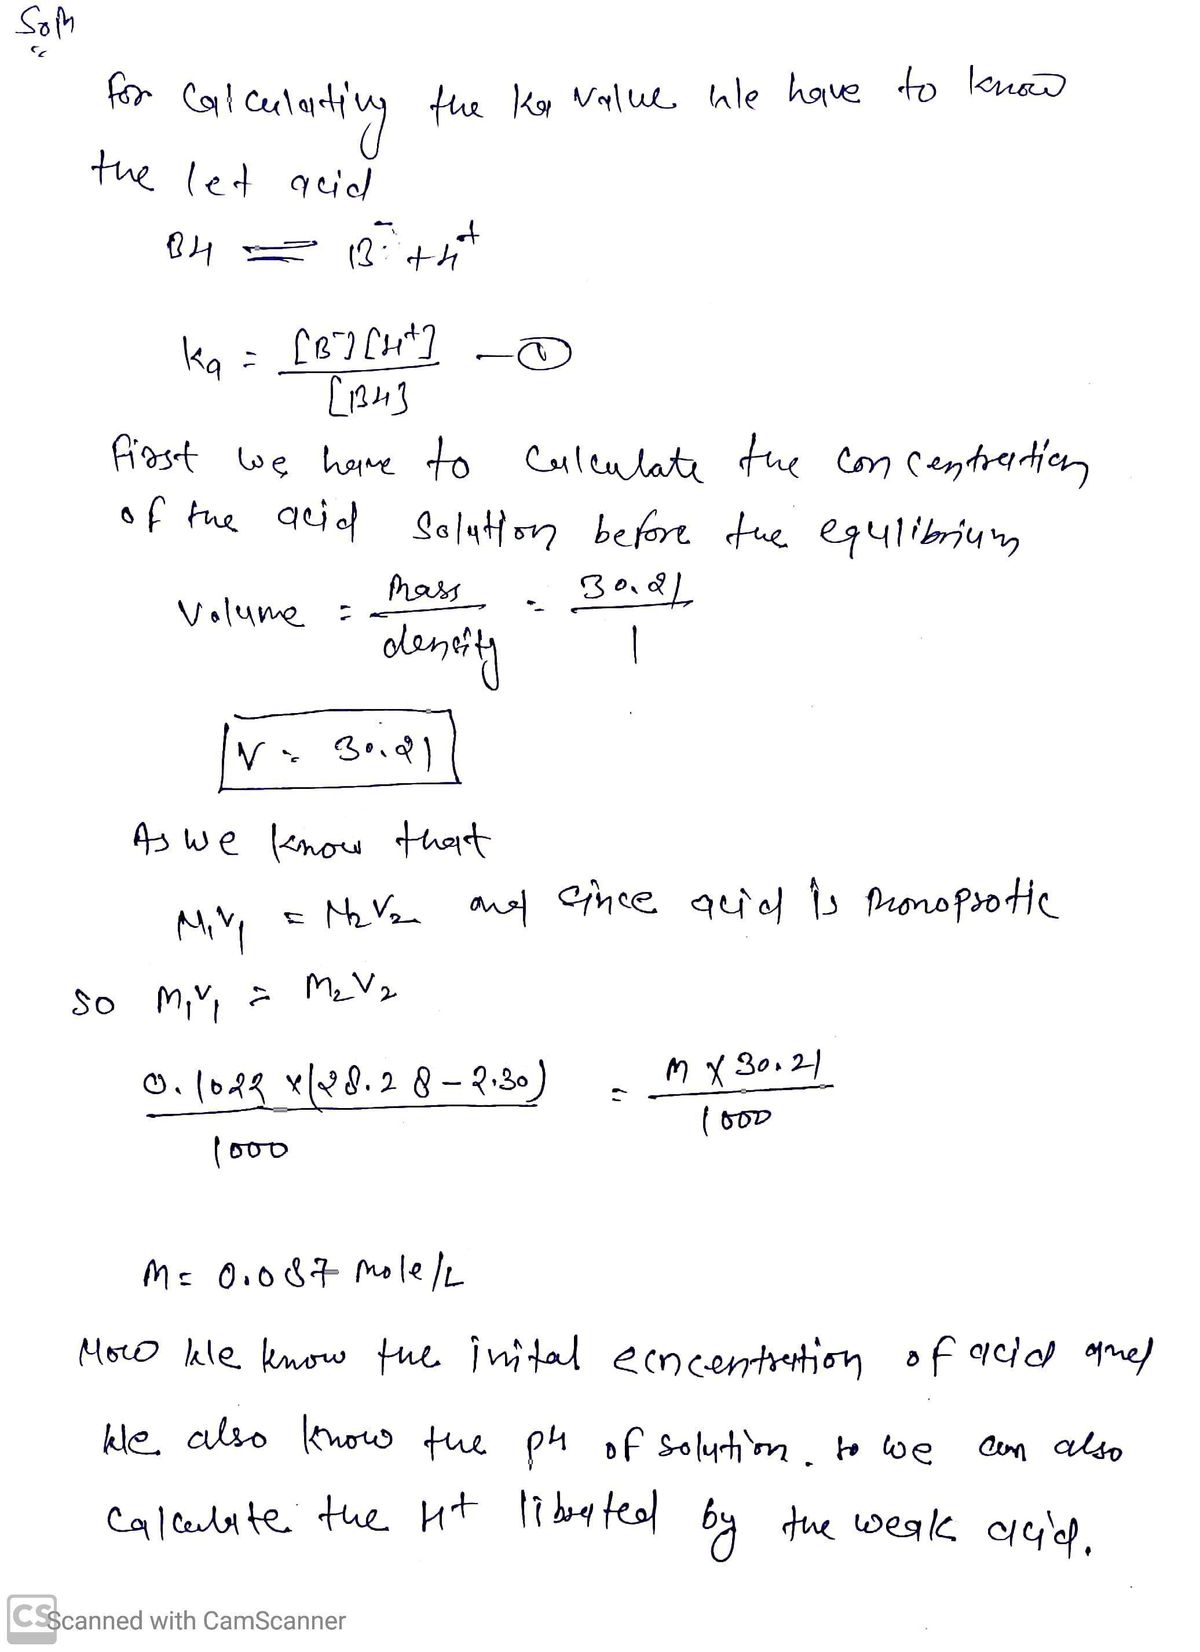 Soln
for calculating the ka value We have to know
the let acid
BH ⇌ B⁻ + H⁺
ka = [B⁻] [H⁺] / [BH] — ①
first we have to Calculate the concentration
of the acid Solution before the equlibrium
Volume = Mass / density = 30.21 / 1
V = 30.21
As we know that
N₁V₁ = N₂V₂ and since acid is Monoprotic
so M₁V₁ = M₂V₂
0.1022 x (28.28 – 2.30) / 1000 = M X 30.21 / 1000
M = 0.087 Mole/L
Now We know the inital concentration of acid and
We also know the pH of solution. so we can also
Calculate the H+ librated by the weak acid.
CS Scanned with CamScanner